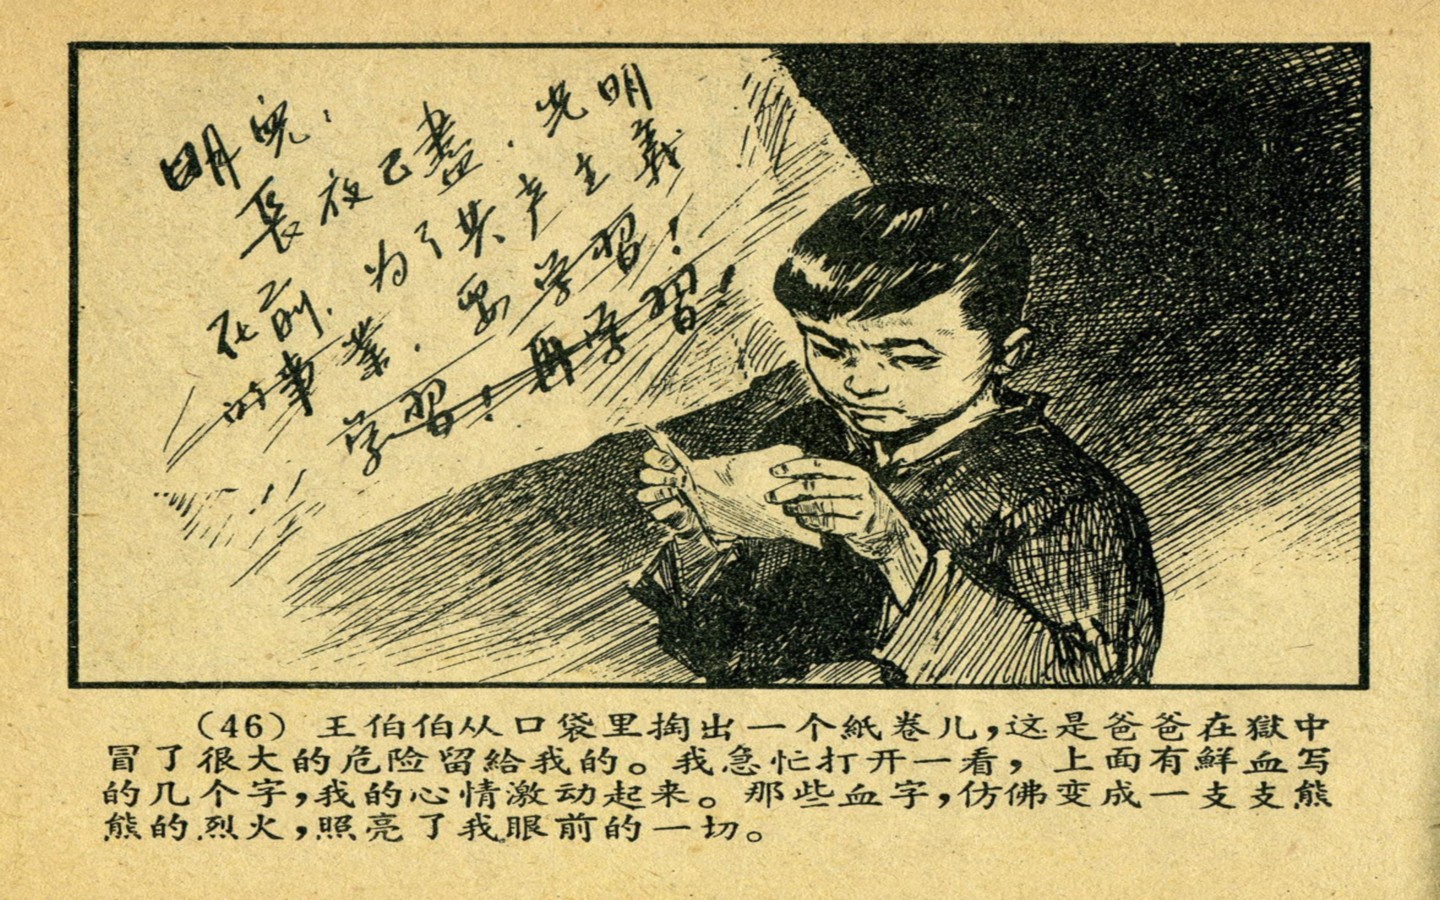 明儿：
長夜已盡．光明
在前．为了共产主義
的事業．要学習！
学習！再学習！
（46）王伯伯从口袋里掏出一个紙卷儿，这是爸爸在獄中
冒了很大的危险留給我的。我急忙打开一看，上面有鮮血写
的几个字，我的心情激动起来。那些血字，仿佛变成一支支熊
熊的烈火，照亮了我眼前的一切。